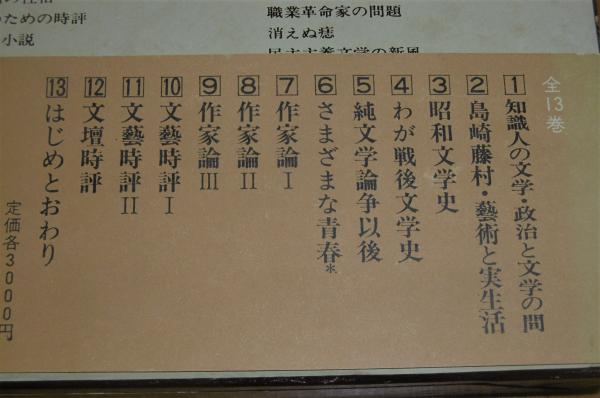 職業革命家の問題
消えぬ痣
民主主義文学の新風
のための時評
小説
全13巻
1 知識人の文学・政治と文学の間
2 島崎藤村・藝術と実生活
3 昭和文学史
4 わが戦後文学史
5 純文学論争以後
6 さまざまな青春*
7 作家論Ⅰ
8 作家論Ⅱ
9 作家論Ⅲ
10 文藝時評Ⅰ
11 文藝時評Ⅱ
12 文壇時評
13 はじめとおわり
定価各3000円